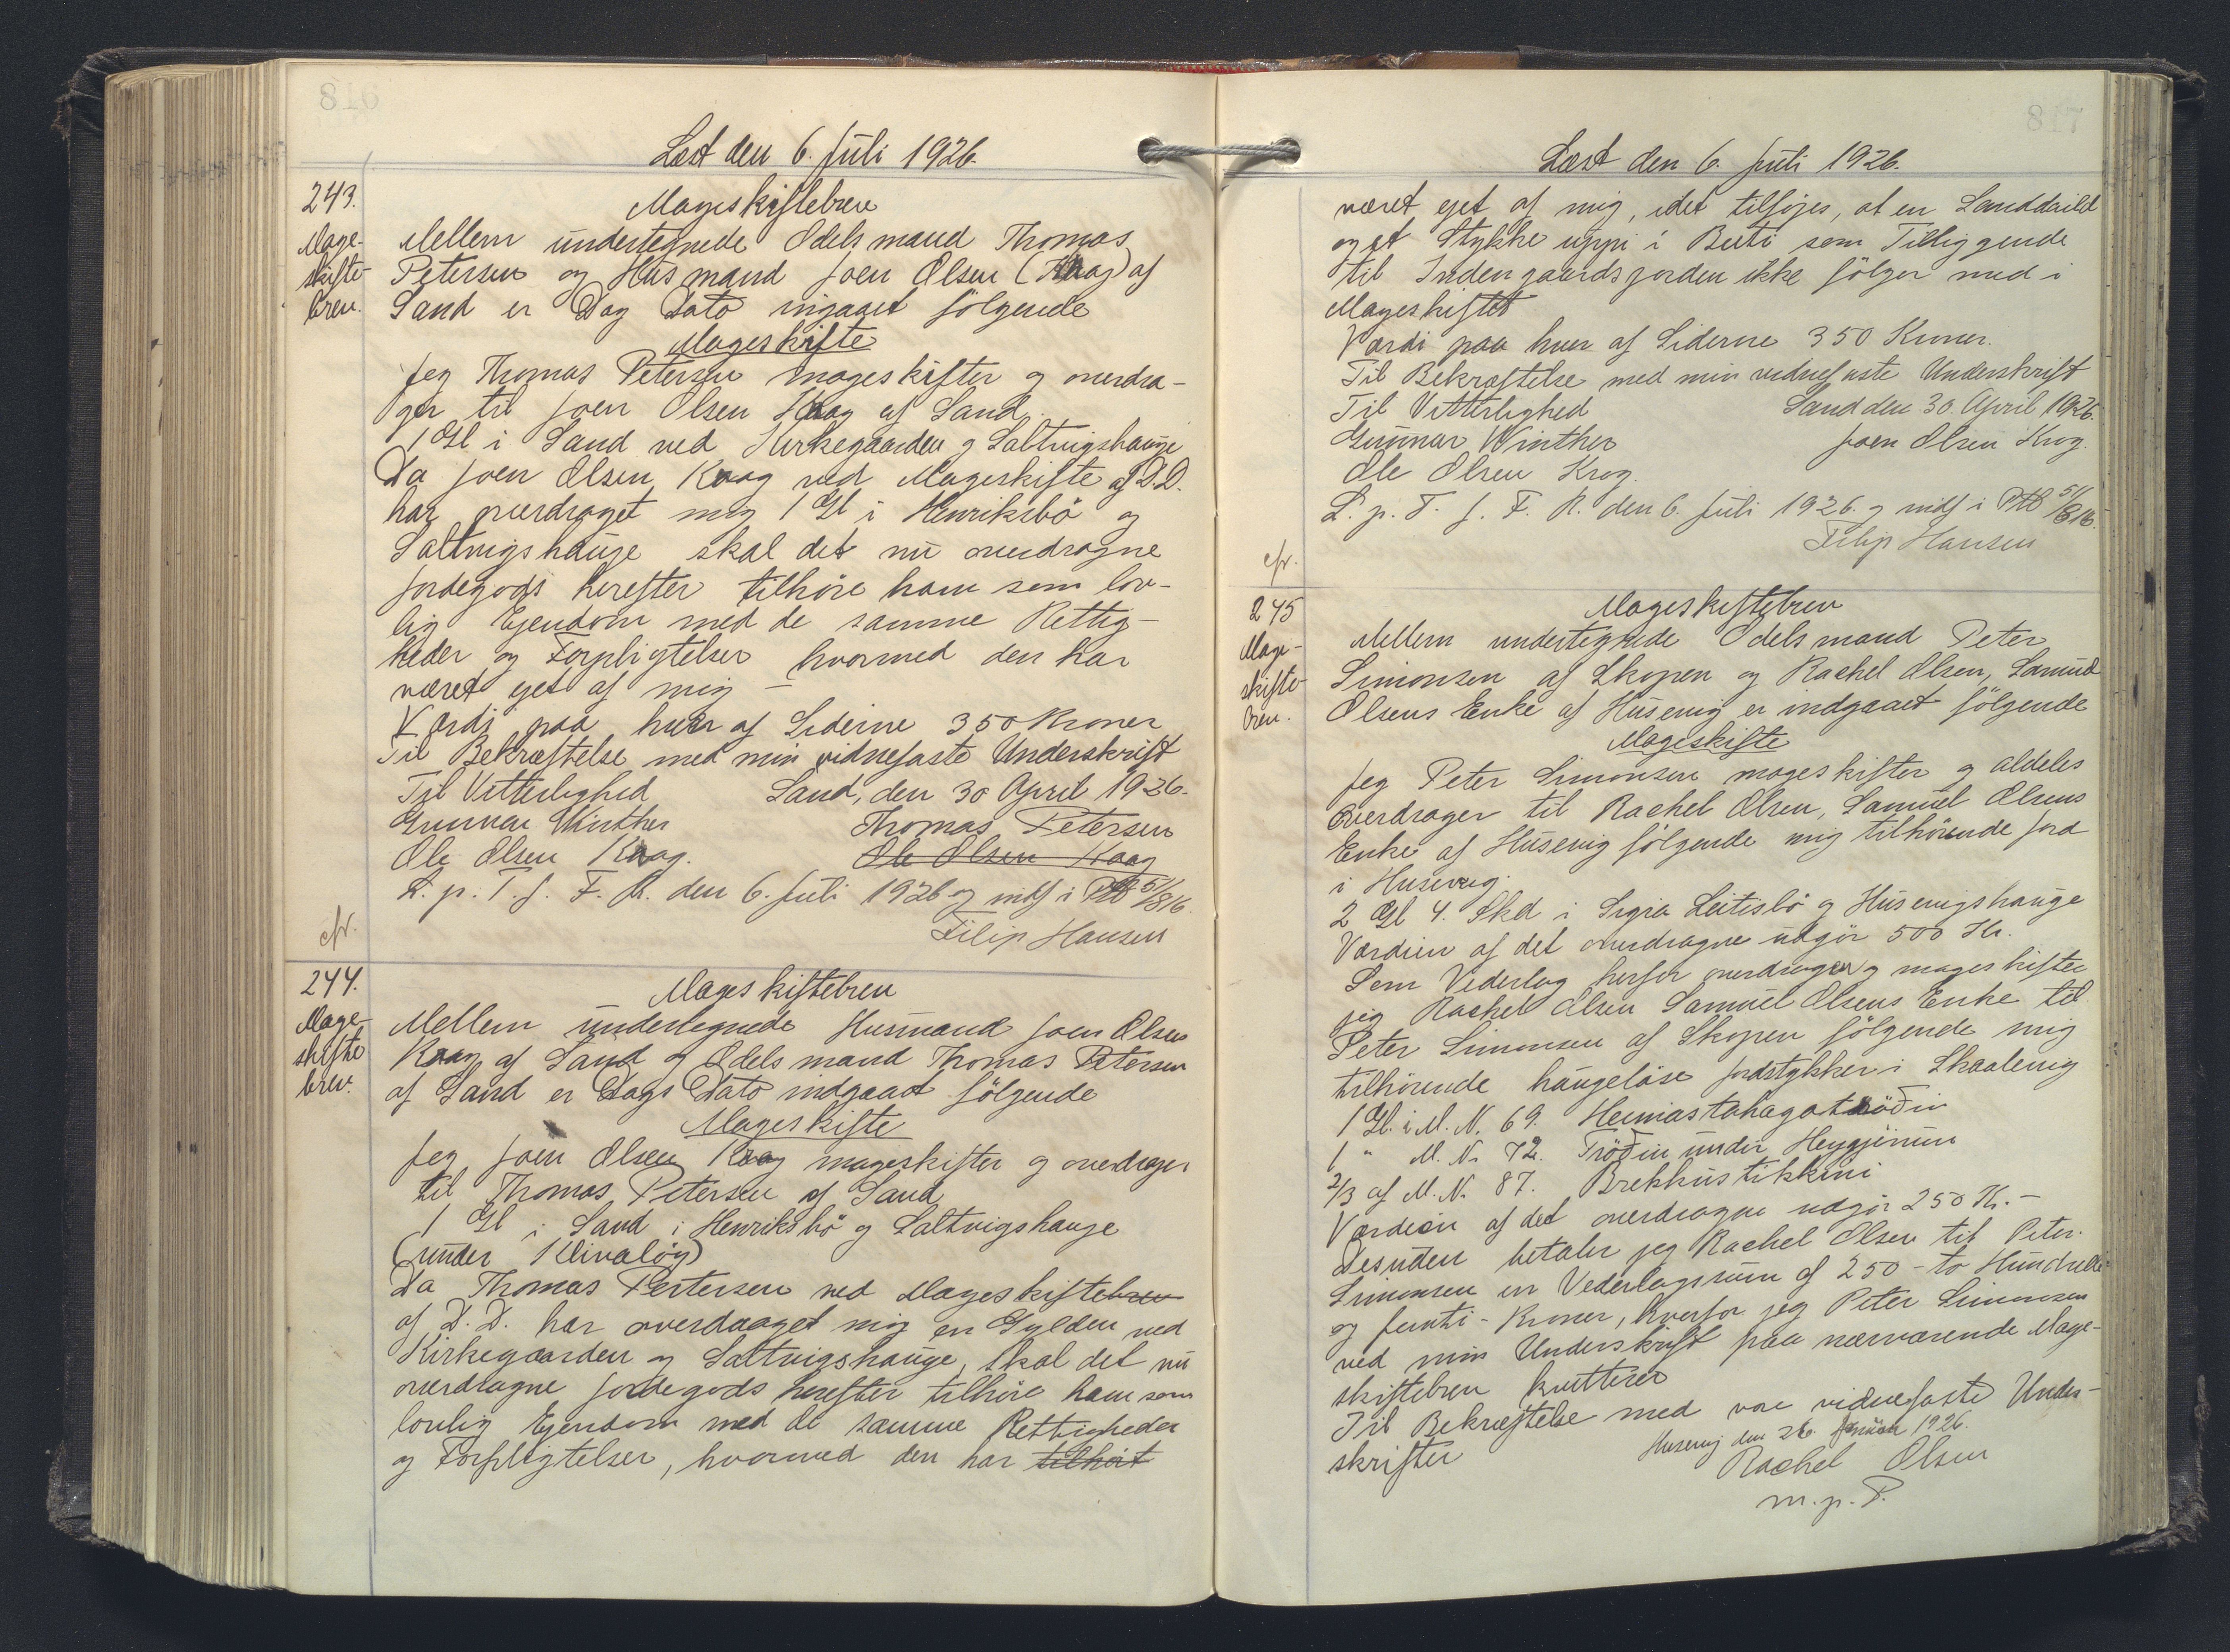 816
Læst den 6. Juli 1926.
243.
Mage-
skifte-
brev.
Mageskiftebrev
Mellem undertegnede Odelsmand Thomas
Petersen og Husmand Joen Olsen (Krog) af
Sand er Dag Dato ingaaet følgende
Mageskifte
Jeg Thomas Petersen mageskifter og overdra-
ger til Joen Olsen Krog af Sand.
1 Gl i Sand ved Kirkegaarden og Saltvigshauge
Da Joen Olsen Krog ved Mageskifte af D.D.
har overdraget mig 1 Gl i Henriksbö og
Saltvigshauge skal det nu overdragne
Jordegods herefter tilhöre ham som lov-
lig Ejendom med de samme Rettig-
heder og Forpligtelser hvormed den har
været ejet af mig —
Værdi paa hver af Siderne 350 Kroner
Til Bekræftelse med min vidnefaste Underskrift
Til Vitterlighed Sand, den 30 April 1926.
Gunnar Winther Thomas Petersen
Ole Olsen Krog. Ole Olsen Krog
L. p. T. f. F. R. den 6. Juli 1926 og indf i Ptb 5 1/816.
cfr. Filip Hansen
244.
Mage-
skifte
brev.
Mageskiftebrev
Mellem undertegnede Husmand Joen Olsen
Krog af Sand og Odelsmand Thomas Petersen
af Sand er Dags Dato indgaaet følgende
Mageskifte
Jeg Joen Olsen Krog mageskifter og overdrager
til Thomas Petersen af Sand
1 Gl i Sand i Henriksbö og Saltvigshauge
(under Klivalög)
Da Thomas Pertersen ved Mageskiftebrev
af D.D. har overdraget mig en Gylden ved
Kirkegaarden og Saltvigshauge, skal det nu
overdragne Jordegods herefter tilhöre ham som
lovlig Ejendom med de samme Rettigheder
og Forpligtelser, hvormed den har tilhört
817
Læst den 6. Juli 1926.
været ejet af mig, idet tilföjes, at en Landdeild
og et Stykke uppi i Beiti som Tilliggende
til Indengaardsjorden ikke fölger med i
Mageskiftet
Værdi paa hver af Siderne 350 Kroner.
Til Bekræftelse med min vidnefaste Underskrift
Til Vitterlighed Sand den 30. April 1926.
Gunnar Winther Joen Olsen Krog.
Ole Olsen Krog.
L. p. T. f. F. R. den 6. Juli 1926. og indf i Ptb 5 1/816.
cfr. Filip Hansen
245
Mage-
skifte-
brev.
Mageskiftebrev
Mellem undertegnede Odelsmand Peter
Simonsen af Skopen og Rachel Olsen, Samuel
Olsens Enke af Husevig er indgaaet fölgende
Mageskifte
Jeg Peter Simonsen mageskifter og aldeles
overdrager til Rachel Olsen, Samuel Olsens
Enke af Husevig fölgende mig tilhörende Jord
i Husevig.
2 Gl 4. Skd i Signa Leitisbö og Husevigshauge
Værdien af det overdragne udgör 500 Kr.
Som Vederlag herfor overdrager og mageskifter
jeg Rachel Olsen Samuel Olsens Enke til
Peter Simonsen af Skopen fölgende mig
tilhörende haugelöse Jordstykker i Skaalevig
1 Gl. i M. N. 69. Heimastahagatröðin
1 " M. N. 72. Tröðin undir Heygjunum
2/3 af M. N. 87. Brekkustikkini
Værdien af det overdragne udgör 250 Kr. —
Desuden betaler jeg Rachel Olsen til Peter
Simonsen en Vederlagssum af 250 - to Hundrede
og femti - Kroner, hvorfor jeg Peter Simonsen
ved min Underskrift paa nærværende Mage-
skiftebrev kvitterer
Til Bekræftelse med vore vidnefaste Under-
skrifter Husevig den 26. Januar 1926.
Rachel Olsen
m. p. P.